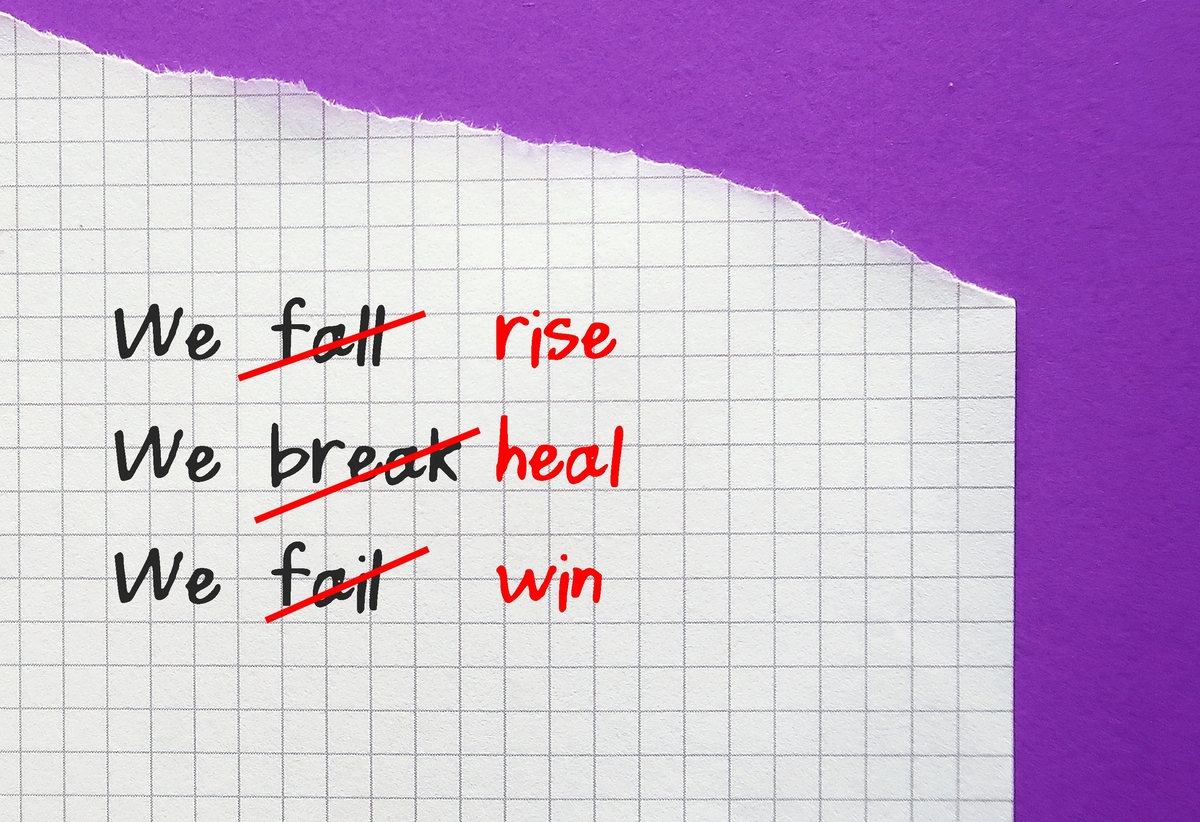 We fall rise
We break heal
We fail win